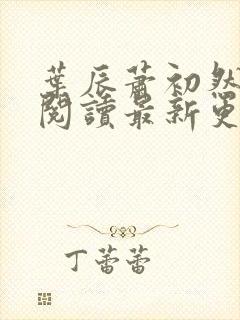 葉辰蕭初然
閱讀最新更
丁蕾蕾